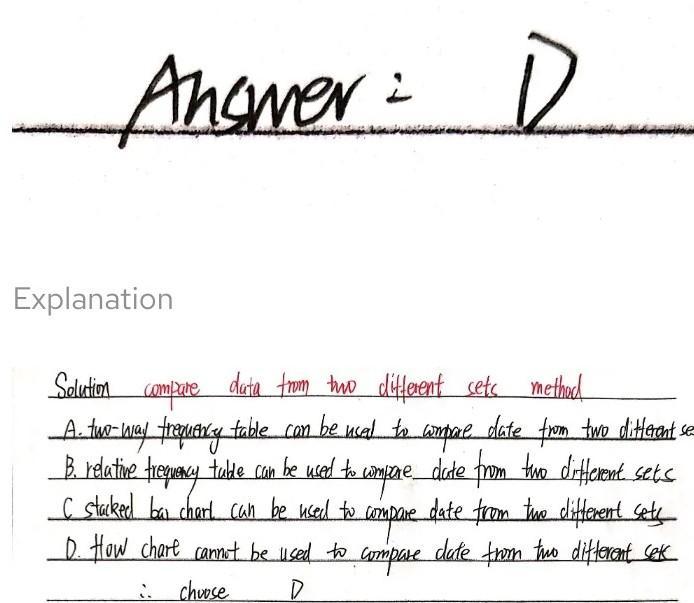 Answer: D
Explanation
Solution compare data from two different sets method
A. two-way frequency table can be used to compare date from two different se
B. relative frequency table can be used to compare date from two different sets
C stacked bar chart can be used to compare date from two different sets
D. How chart cannot be used to compare date from two different sets
∴ choose D